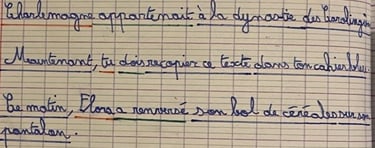 Charlemagne appartenait à la dynastie des Carolingien
Maintenant, tu dois recopier ce texte dans ton cahier bleu.
Ce matin, Elora a renversé son bol de céréales sur son
pantalon.